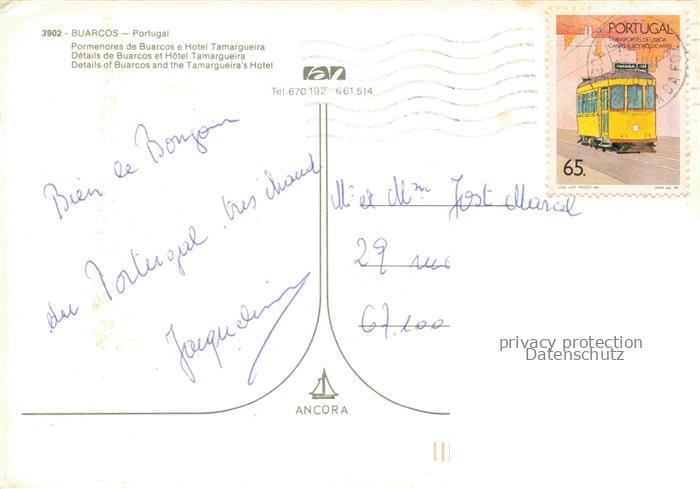 3902 - BUARCOS — Portugal
Pormenores de Buarcos e Hotel Tamargueira
Détails de Buarcos et Hôtel Tamargueira
Details of Buarcos and the Tamargueira's Hotel
Tel. 670 192 - 661 514
PORTUGAL
TRANSPORTES DE LISBOA
65.
Bien le Bonjour
du Portugal très chaud
Jacqueline
Mr et Mme Jost Marcel
29 rue
67100
privacy protection
Datenschutz
ANCORA